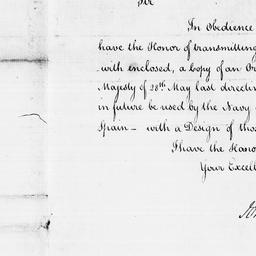 Sir
In Obedience
have the Honor of transmitting
with enclosed, a copy of an Or
Majesty of 28th May last directin
in future be used by the Navy
Spain - with a Design of thos
I have the Hono
Your Excell